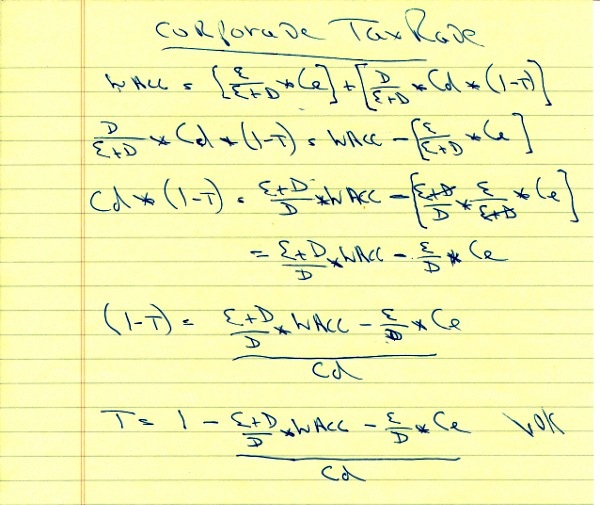 Corporate Tax Rate
WACC = [E/(E+D) * Ce] + [D/(E+D) * Cd * (1-T)]
D/(E+D) * Cd * (1-T) = WACC - [E/(E+D) * Ce]
Cd * (1-T) = (E+D)/D * WACC - [(E+D)/D * E/(E+D) * Ce]
= (E+D)/D * WACC - E/D * Ce
(1-T) = ((E+D)/D * WACC - E/D * Ce)/Cd
T = 1 - ((E+D)/D * WACC - E/D * Ce)/Cd VOK